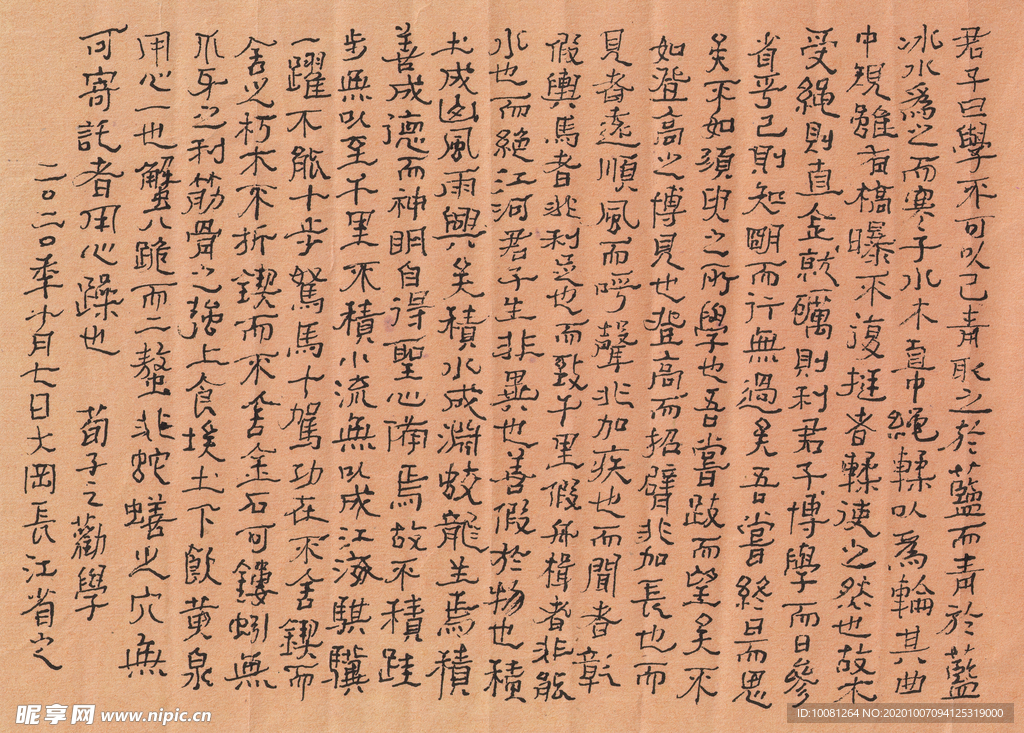 君子曰學不可以已青取之於藍而青於藍
冰水為之而寒于水木直中繩輮以為輪其曲
中規雖有槁曝不復挺者輮使之然也故木
受繩則直金就礪則利君子博學而日參
省乎己則知明而行無過矣吾嘗終日而思
矣不如須臾之所學也吾嘗跂而望矣不
如登高之博見也登高而招臂非加長也而
見者遠順風而呼聲非加疾也而聞者彰
假輿馬者非利足也而致千里假舟楫者非能
水也而絕江河君子生非異也善假於物也積
土成山風雨興矣積水成淵蛟龍生焉積
善成德而神明自得聖心備焉故不積跬
步無以至千里不積小流無以成江海騏驥
一躍不能十步駑馬十駕功在不舍鍥而
舍之朽木不折鍥而不舍金石可鏤蚓無
爪牙之利筋骨之強上食埃土下飲黃泉
用心一也蟹八跪而二螯非蛇蟮之穴無
可寄託者用心躁也 荀子之勸學
二〇二〇年十月七日大岡長江省之
昵享网 www.nipic.cn
ID:10081264 NO:20201007094125319000